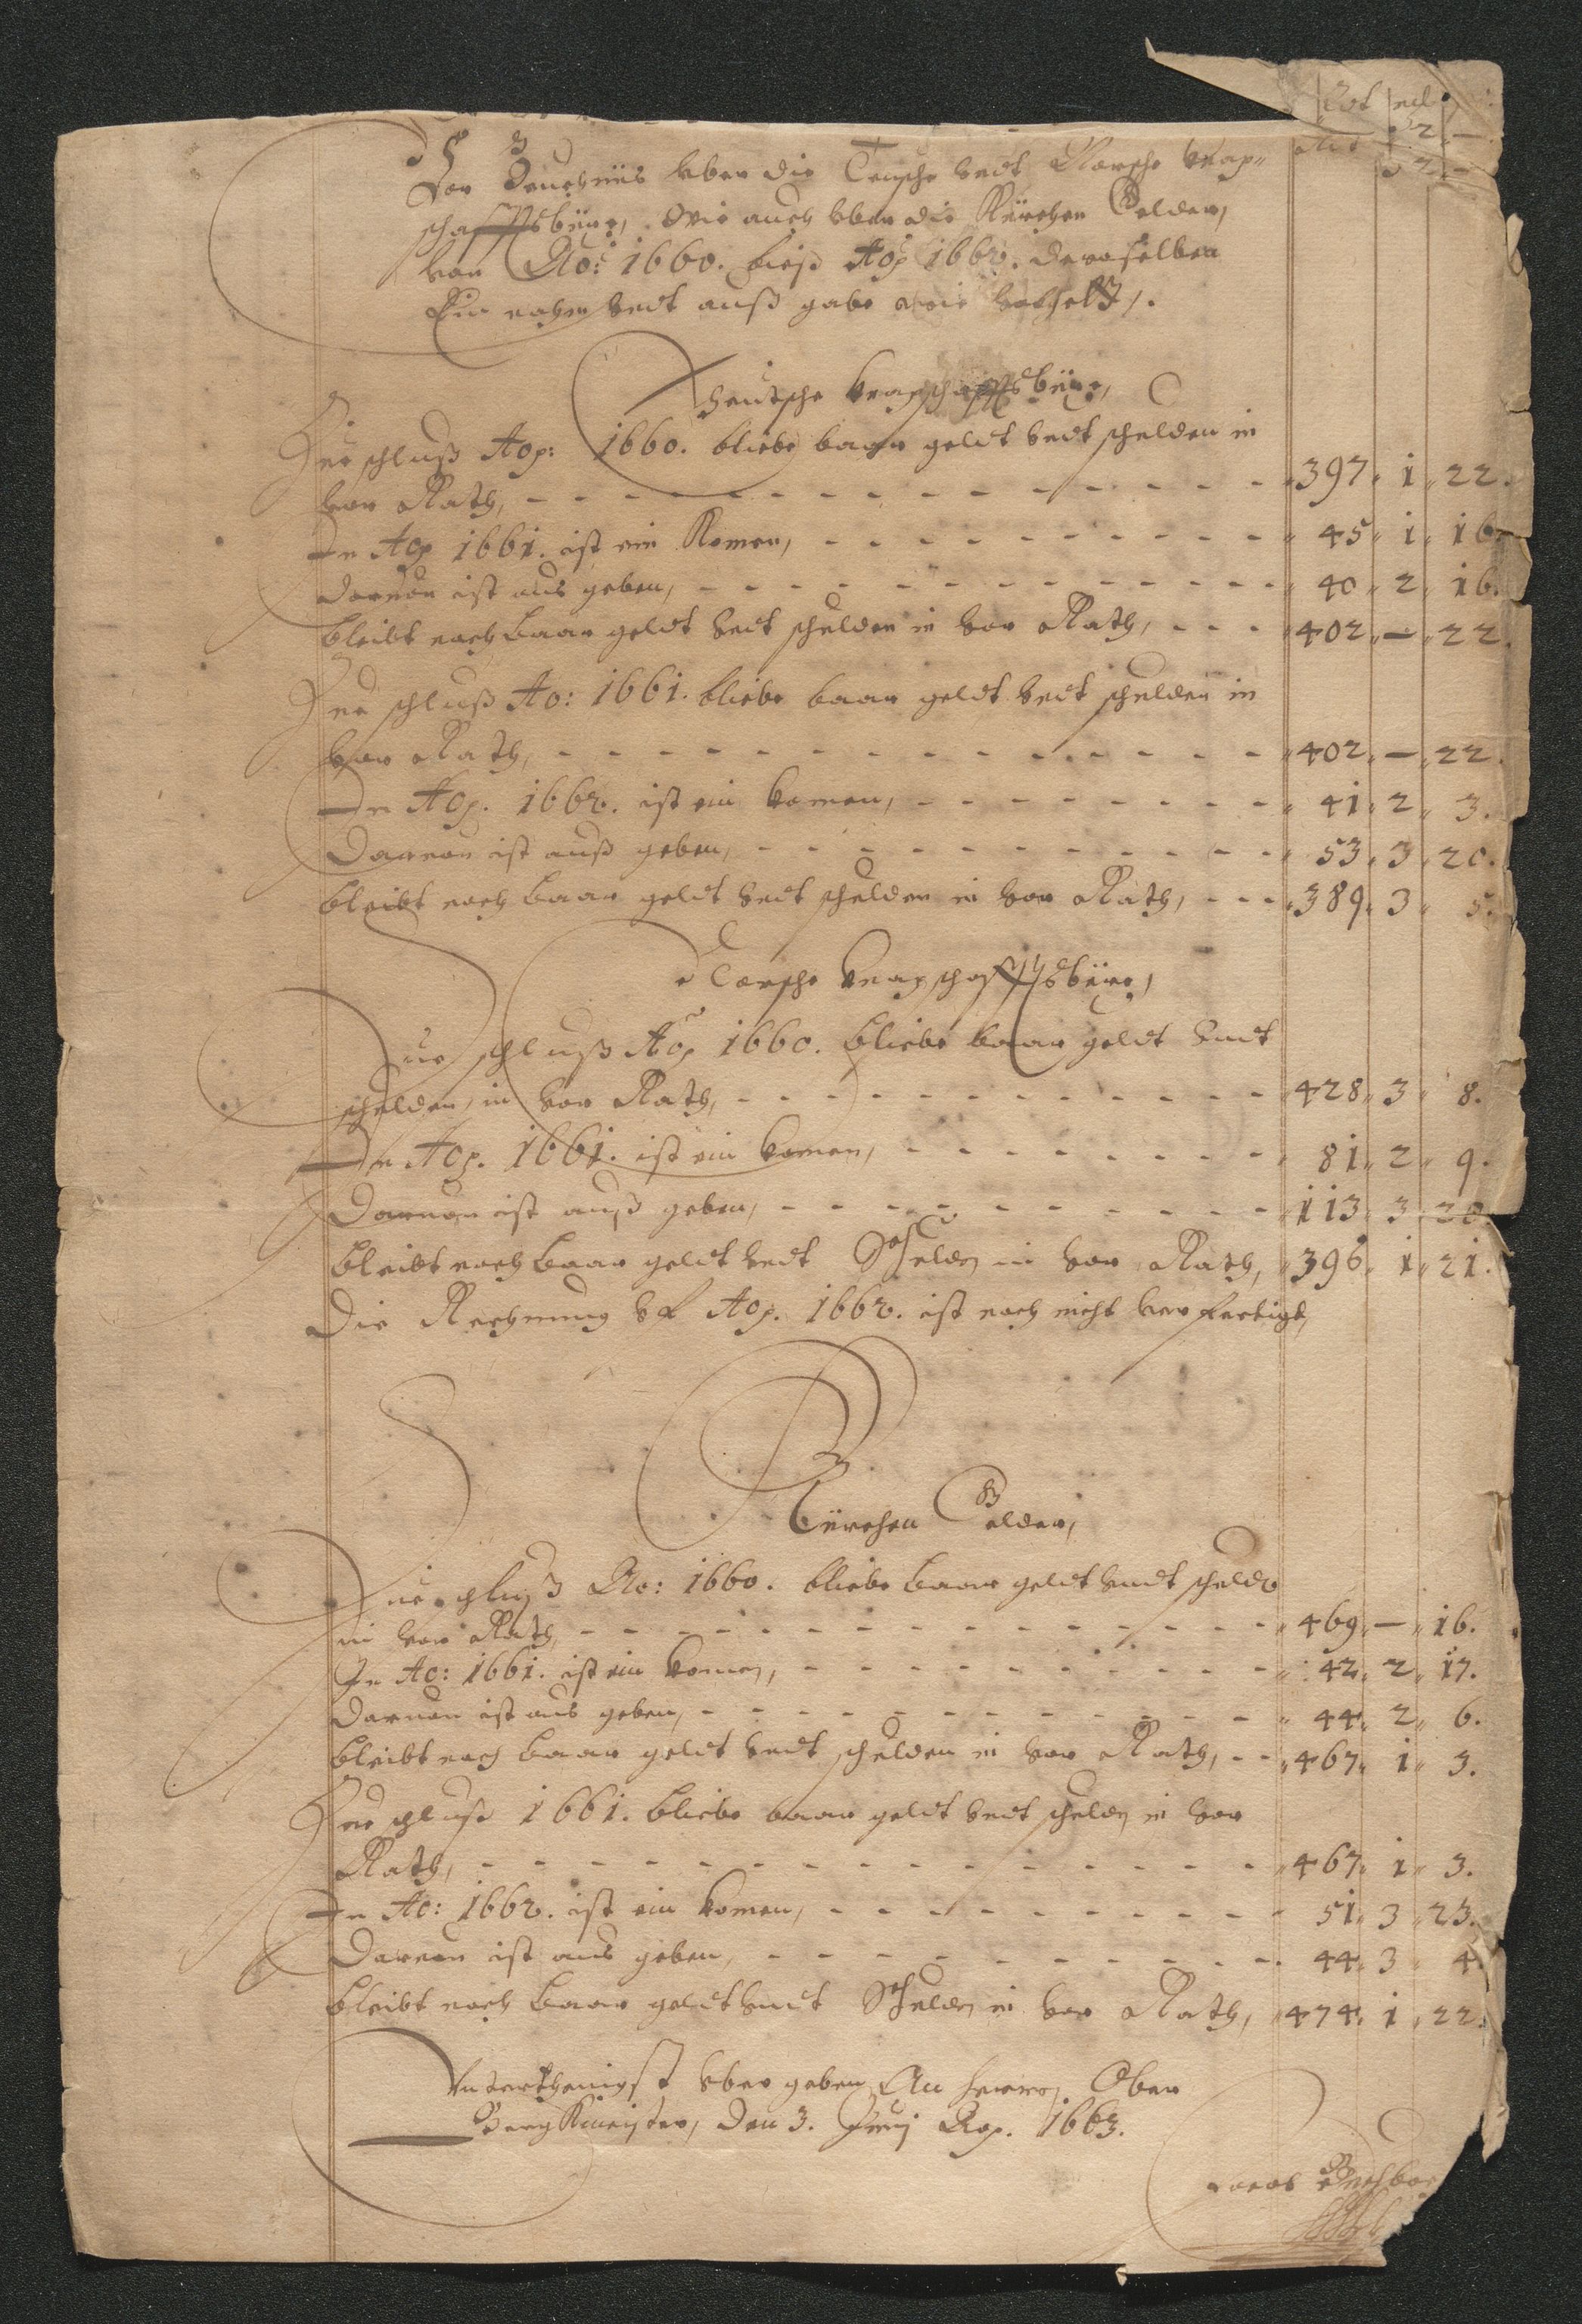 Verzeuchnüs uber die Teusche undt Norsche knap=
schafftsbüxe, Wie auch uber die Kürchen Gelder,
von Ao: 1660. bieß Ao 1662. deroselben
Ein nahm undt auß gabe wie volgett.
Theutsche knapschafftsbüxe,
Zue schluß Ao: 1660. bliebe baar geldt undt schulden in
vor Rath, - - - 397. 1. 22.
In Ao 1661. ist ein Komen, - - - 45. 1. 16.
Daruon ist aus geben, - - - 40. 2. 16.
bleibt noch baar geldt undt schulden in vor Rath, - - - 402. — 22.
Zue schluß Ao: 1661. bliebe baar geldt undt schulden in
vor Rath, - - - 402. — 22.
In Ao. 1662. ist ein komen, - - - 41. 2. 3.
Daruon ist auß geben, - - - 53. 3. 20.
bleibt noch baar geldt undt schulden in vor Rath, - - - 389. 3. 5.
Norsche knapschafftsbüxe,
Zue schluß Ao 1660. bliebe baar geldt undt
schulden, in vor Rath, - - - 428. 3. 8.
In Ao. 1661. ist ein komen, - - - 81. 2. 9.
Daruon ist auß geben, - - - 113. 3. 20.
bleibt noch baar geldt undt Schulden in vor Rath, 396. 1. 21.
Die Rechnung uf Ao. 1662. ist noch nicht ver fertigt,
Kürchen Gelder,
Zue schluß Ao: 1660. bliebe baar geldt undt schulde
in vor Rath, - - - 469. — 16.
In Ao: 1661. ist ein komen, - - - 42. 2. 17.
Daruon ist aus geben, - - - 44. 2. 6.
bleibt noch baar geldt undt schulden in vor Rath, - - 467. 1. 3.
Zue schluß 1661. bliebe baar geldt undt schulden in vor
Rath, - - - 467. 1. 3.
In Ao: 1662. ist ein komen, - - - 51. 3. 23.
Daruon ist aus geben, - - - 44. 3. 4.
bleibt noch baar geldt undt Schulden in vor Rath, 474. 1. 22.
Unterthenigst uber geben An herren Ober
BergKmeister, den 3. Junij Ao. 1663.